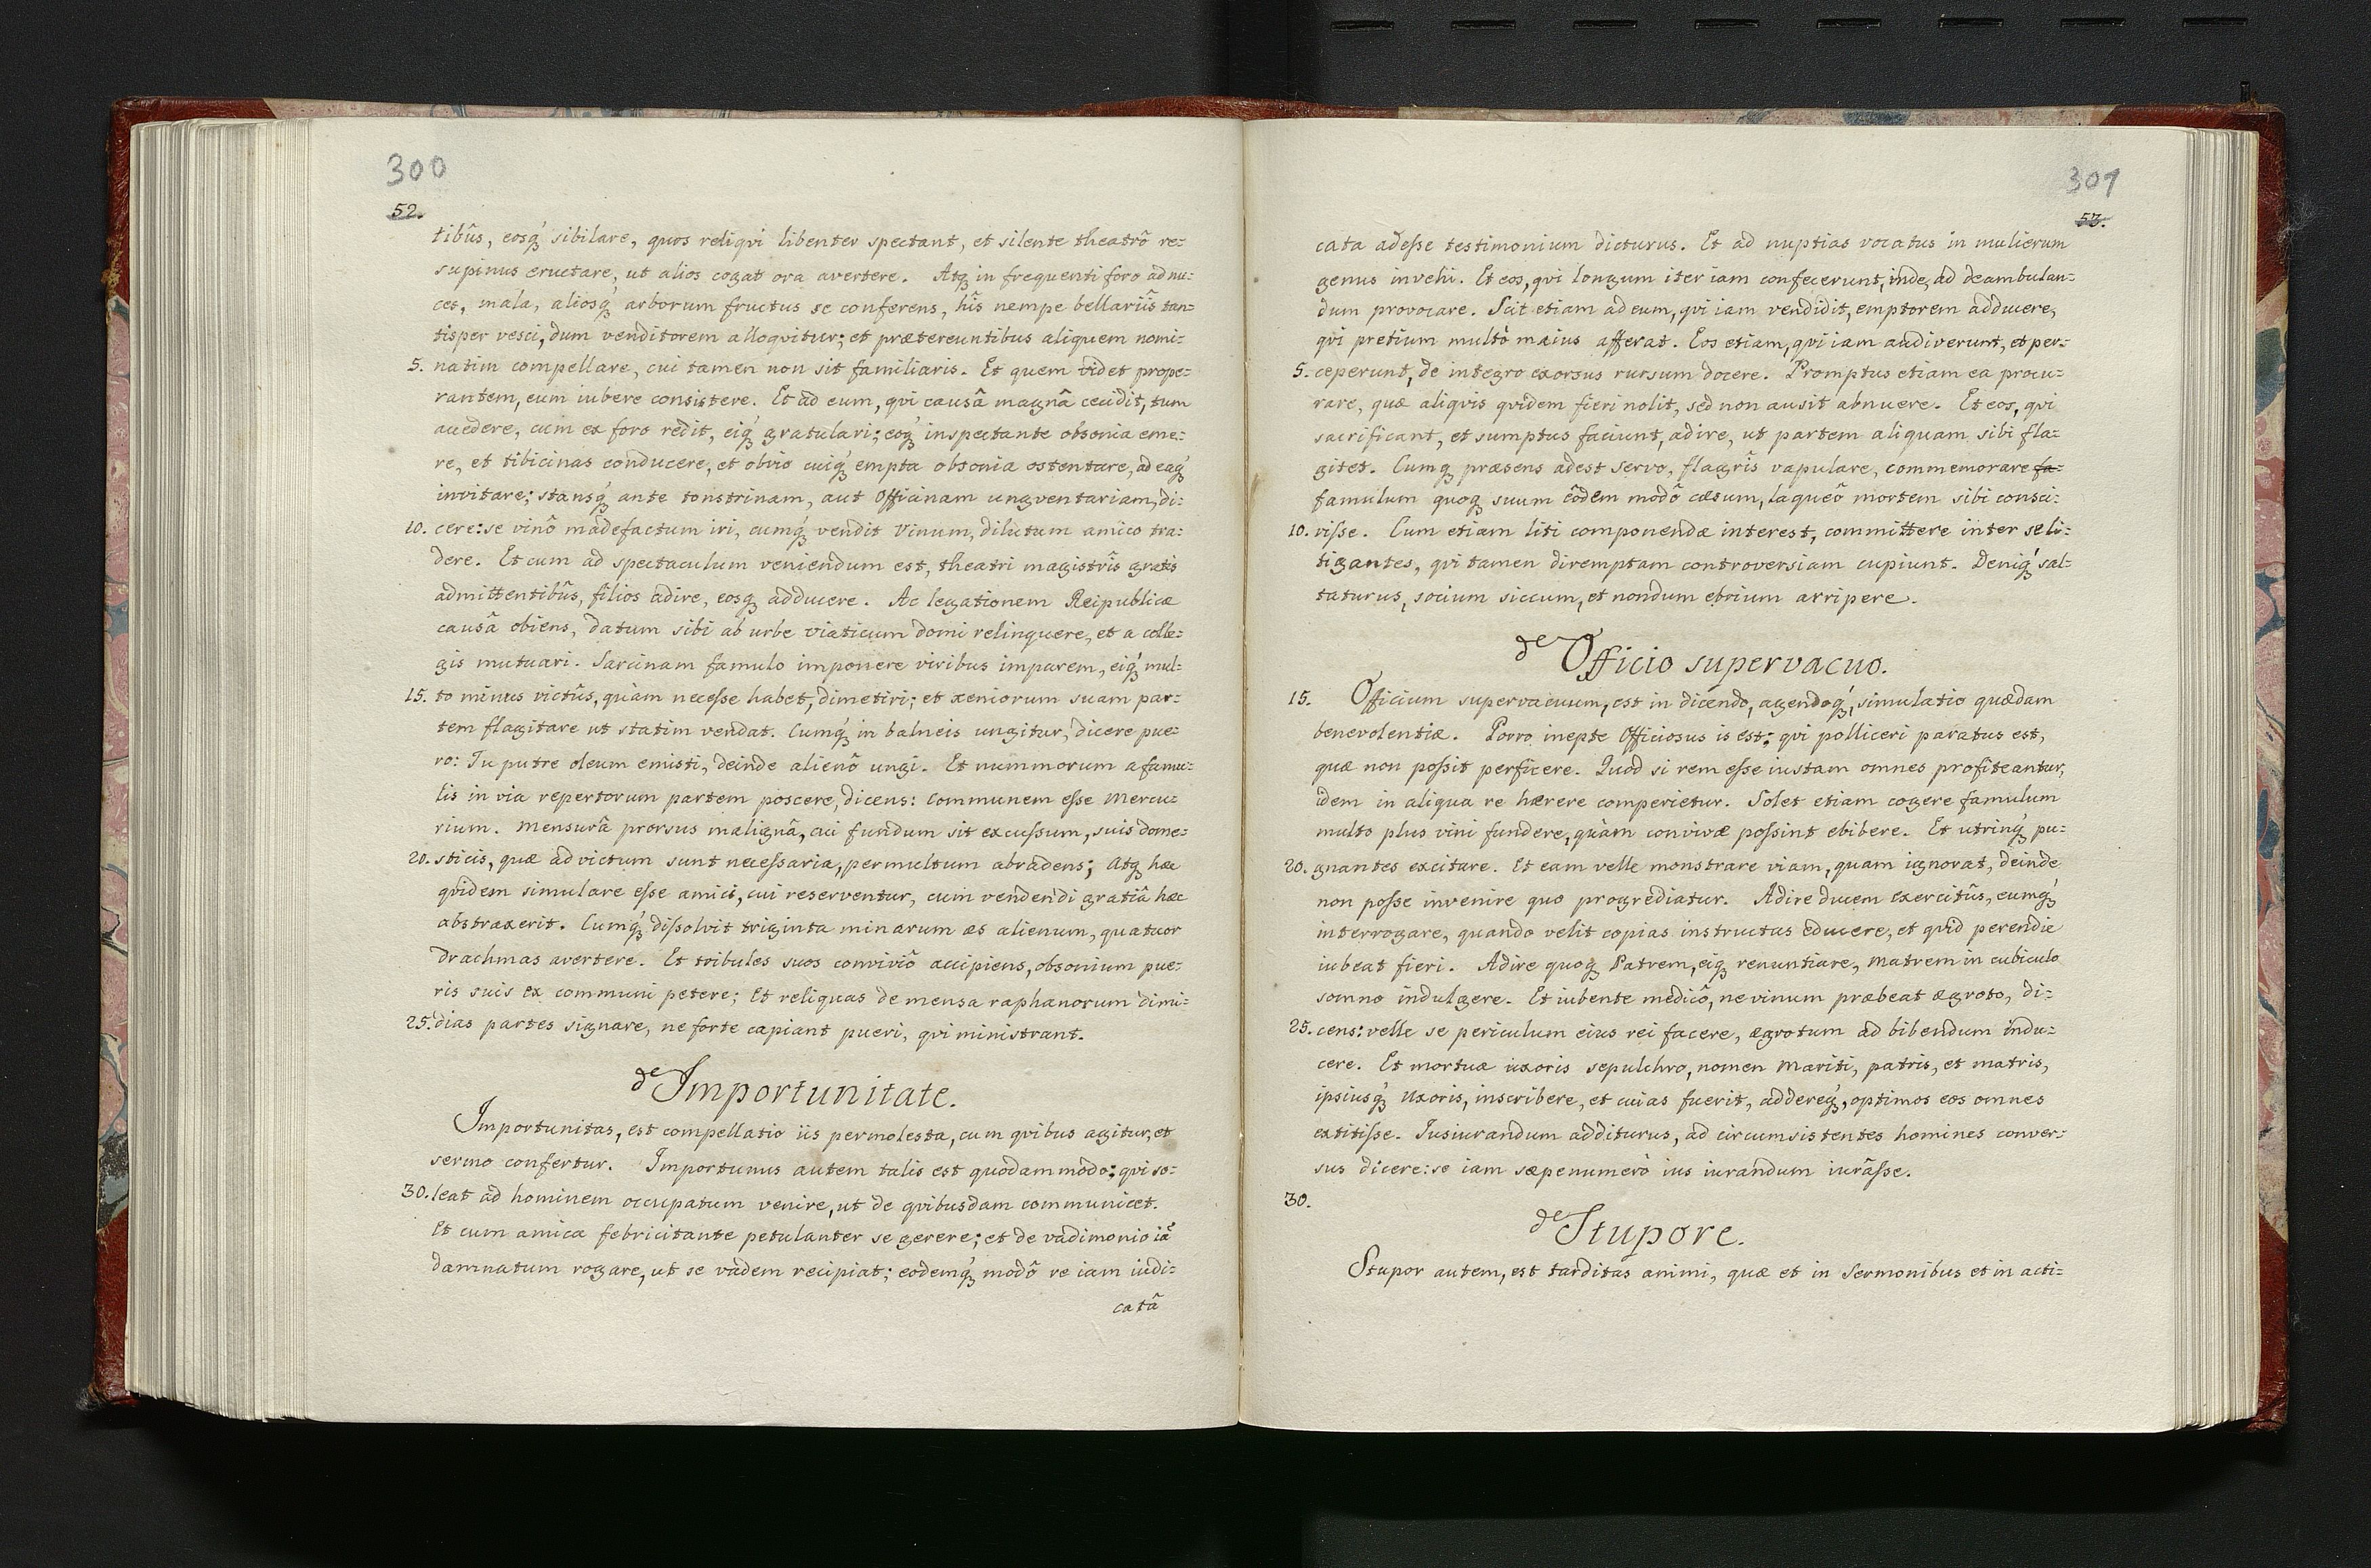 300
52.
tibûs, eosq́ꝫ sibilare, quos reliqvi libenter spectant, et silente theatrô re:
supinus eructare, ut alios cogat ora avertere. Atqꝫ in frequenti foro ad nu:
ces, mala, aliosq́ꝫ arborum fructus se conferens, hîs nempe bellariîs tan:
tisper vesci, dum venditorem alloqvitur; et prætereuntibus aliquem nomi:
5. natim compellare, cui tamen non sit familiaris. Et quem videt prope:
rantem, eum iubere consistere. Et ad eum, qvi causâ magnâ cecidit, tum
accedere, cum ex foro redit, eiq́ꝫ gratulari; eoq́ꝫ inspectante obsonia eme:
re, et tibicinas conducere, et obvio cuiq́ꝫ empta obsonia ostentare, ad eaq́ꝫ
invitare; stansq́ꝫ ante tonstrinam, aut Officinam ungventariam, di:
10. cere: se vinô madefactum iri, cumq́ꝫ vendit Vinum, dilutum amico tra:
dere. Et cum ad spectaculum veniendum est, theatri magistrîs gratîs
admittentibûs, filios adire, eosqꝫ adducere. Ac legationem Reipublicæ
causâ obiens, datum sibi ab urbe viaticum domi relinquere, et a colle:
gis mutuari. Sarcinam famulo imponere viribus imparem, eiq́ꝫ mul:
15. to minus victûs, quàm necesse habet, dimetiri; et xeniorum suam par:
tem flagitare ut statim vendat. Cumq́ꝫ in balneis ungitur, dicere pue:
ro: Tu putre oleum emisti, deinde alienô ungi. Et nummorum a famu:
lis in via repertorum partem poscere, dicens: communem esse Mercu:
rium. Mensurâ prorsus malignâ, cui fundum sit excussum, suis dome:
20. sticis, quæ ad victum sunt necessaria, permultum abradens; Atqꝫ hæc
qvidem simulare esse amici, cui reserventur, cum vendendi gratiâ hæc
abstraxerit. Cumq́ꝫ dissolvit triginta minarum æs alienum, quatuor
drachmas avertere. Et tribules suos conviviô accipiens, obsonium pue:
ris suis ex communi petere; Et reliquas de mensa raphanorum dimi:
25. dias partes signare, ne forte capiant pueri, qvi ministrant.
de Importunitate.
Importunitas, est compellatio iis permolesta, cum qvibus agitur, et
sermo confertur. Importunus autem talis est quodammodo: qvi so:
30. leat ad hominem occupatum venire, ut de qvibusdam communicet.
Et cum amica febricitante petulanter se gerere; et de vadimonio iã
damnatum rogare, ut se vadem recipiat; eodemq́ꝫ modô re iam iudi:
catâ
301
53.
cata adesse testimonium dicturus. Et ad nuptias vocatus in mulierum
genus invehi. Et eos, qvi longum iter iam confecerunt, inde, ad deambulan:
dum provocare. Scit etiam ad eum, qvi iam vendidit, emptorem adducere,
qvi pretium multò maius afferat. Eos etiam, qvi iam audiverunt, et per:
5. ceperunt, de integro exorsus rursum docere. Promptus etiam ea procu:
rare, quæ aliqvis qvidem fieri nolit, sed non ausit abnuere. Et eos, qvi
sacrificant, et sumptus faciunt, adire, ut partem aliquam sibi fla:
gitet. Cumqꝫ præsens adest servo, flagrîs vapulare, commemorare fa:
famulum quoqꝫ suum eôdem modô cæsum, laqueô mortem sibi consci:
10. visse. Cum etiam liti componendæ interest, committere inter se li:
tigantes, qvi tamen diremptam controversiam cupiunt. Deniq́ꝫ sal:
taturus, socium siccum, et nondum ebrium arripere.
de Officio supervacuo.
15. Officium supervacuum, est in dicendo, agendoq́ꝫ, simulatio quædam
benevolentiæ. Porro inepte Officiosus is est; qvi polliceri paratus est,
quæ non possit perficere. Quod si rem esse iustam omnes profiteantur,
idem in aliqua re hærere comperietur. Solet etiam cogere famulum
multo plus vini fundere, quàm convivæ possint ebibere. Et utrinq́ꝫ pu:
20. gnantes excitare. Et eam velle monstrare viam, quam ignorat, deinde
non posse invenire quo progrediatur. Adire ducem exercitûs, eumq́ꝫ
interrogare, quando velit copias instructas educere, et qvid perendie
iubeat fieri. Adire quoqꝫ Patrem, eiqꝫ renuntiare, matrem in cubiculo
somno indulgere. Et iubente medicô, ne vinum præbeat ægroto, di:
25. cens: velle se periculum eius rei facere, ægrotum ad bibendum indu:
cere. Et mortuæ uxoris sepulchro, nomen Mariti, patris, et matris,
ipsiusq́ꝫ Uxoris, inscribere, et cuias fuerit, addereq́ꝫ, optimos eos omnes
extitisse. Iusiurandum additurus, ad circumsistentes homines conver:
sus dicere: se iam sæpenumerò ius iurandum iurâsse.
30.
de Stupore.
Stupor autem, est tarditas animi, quæ et in Sermonibus et in acti: